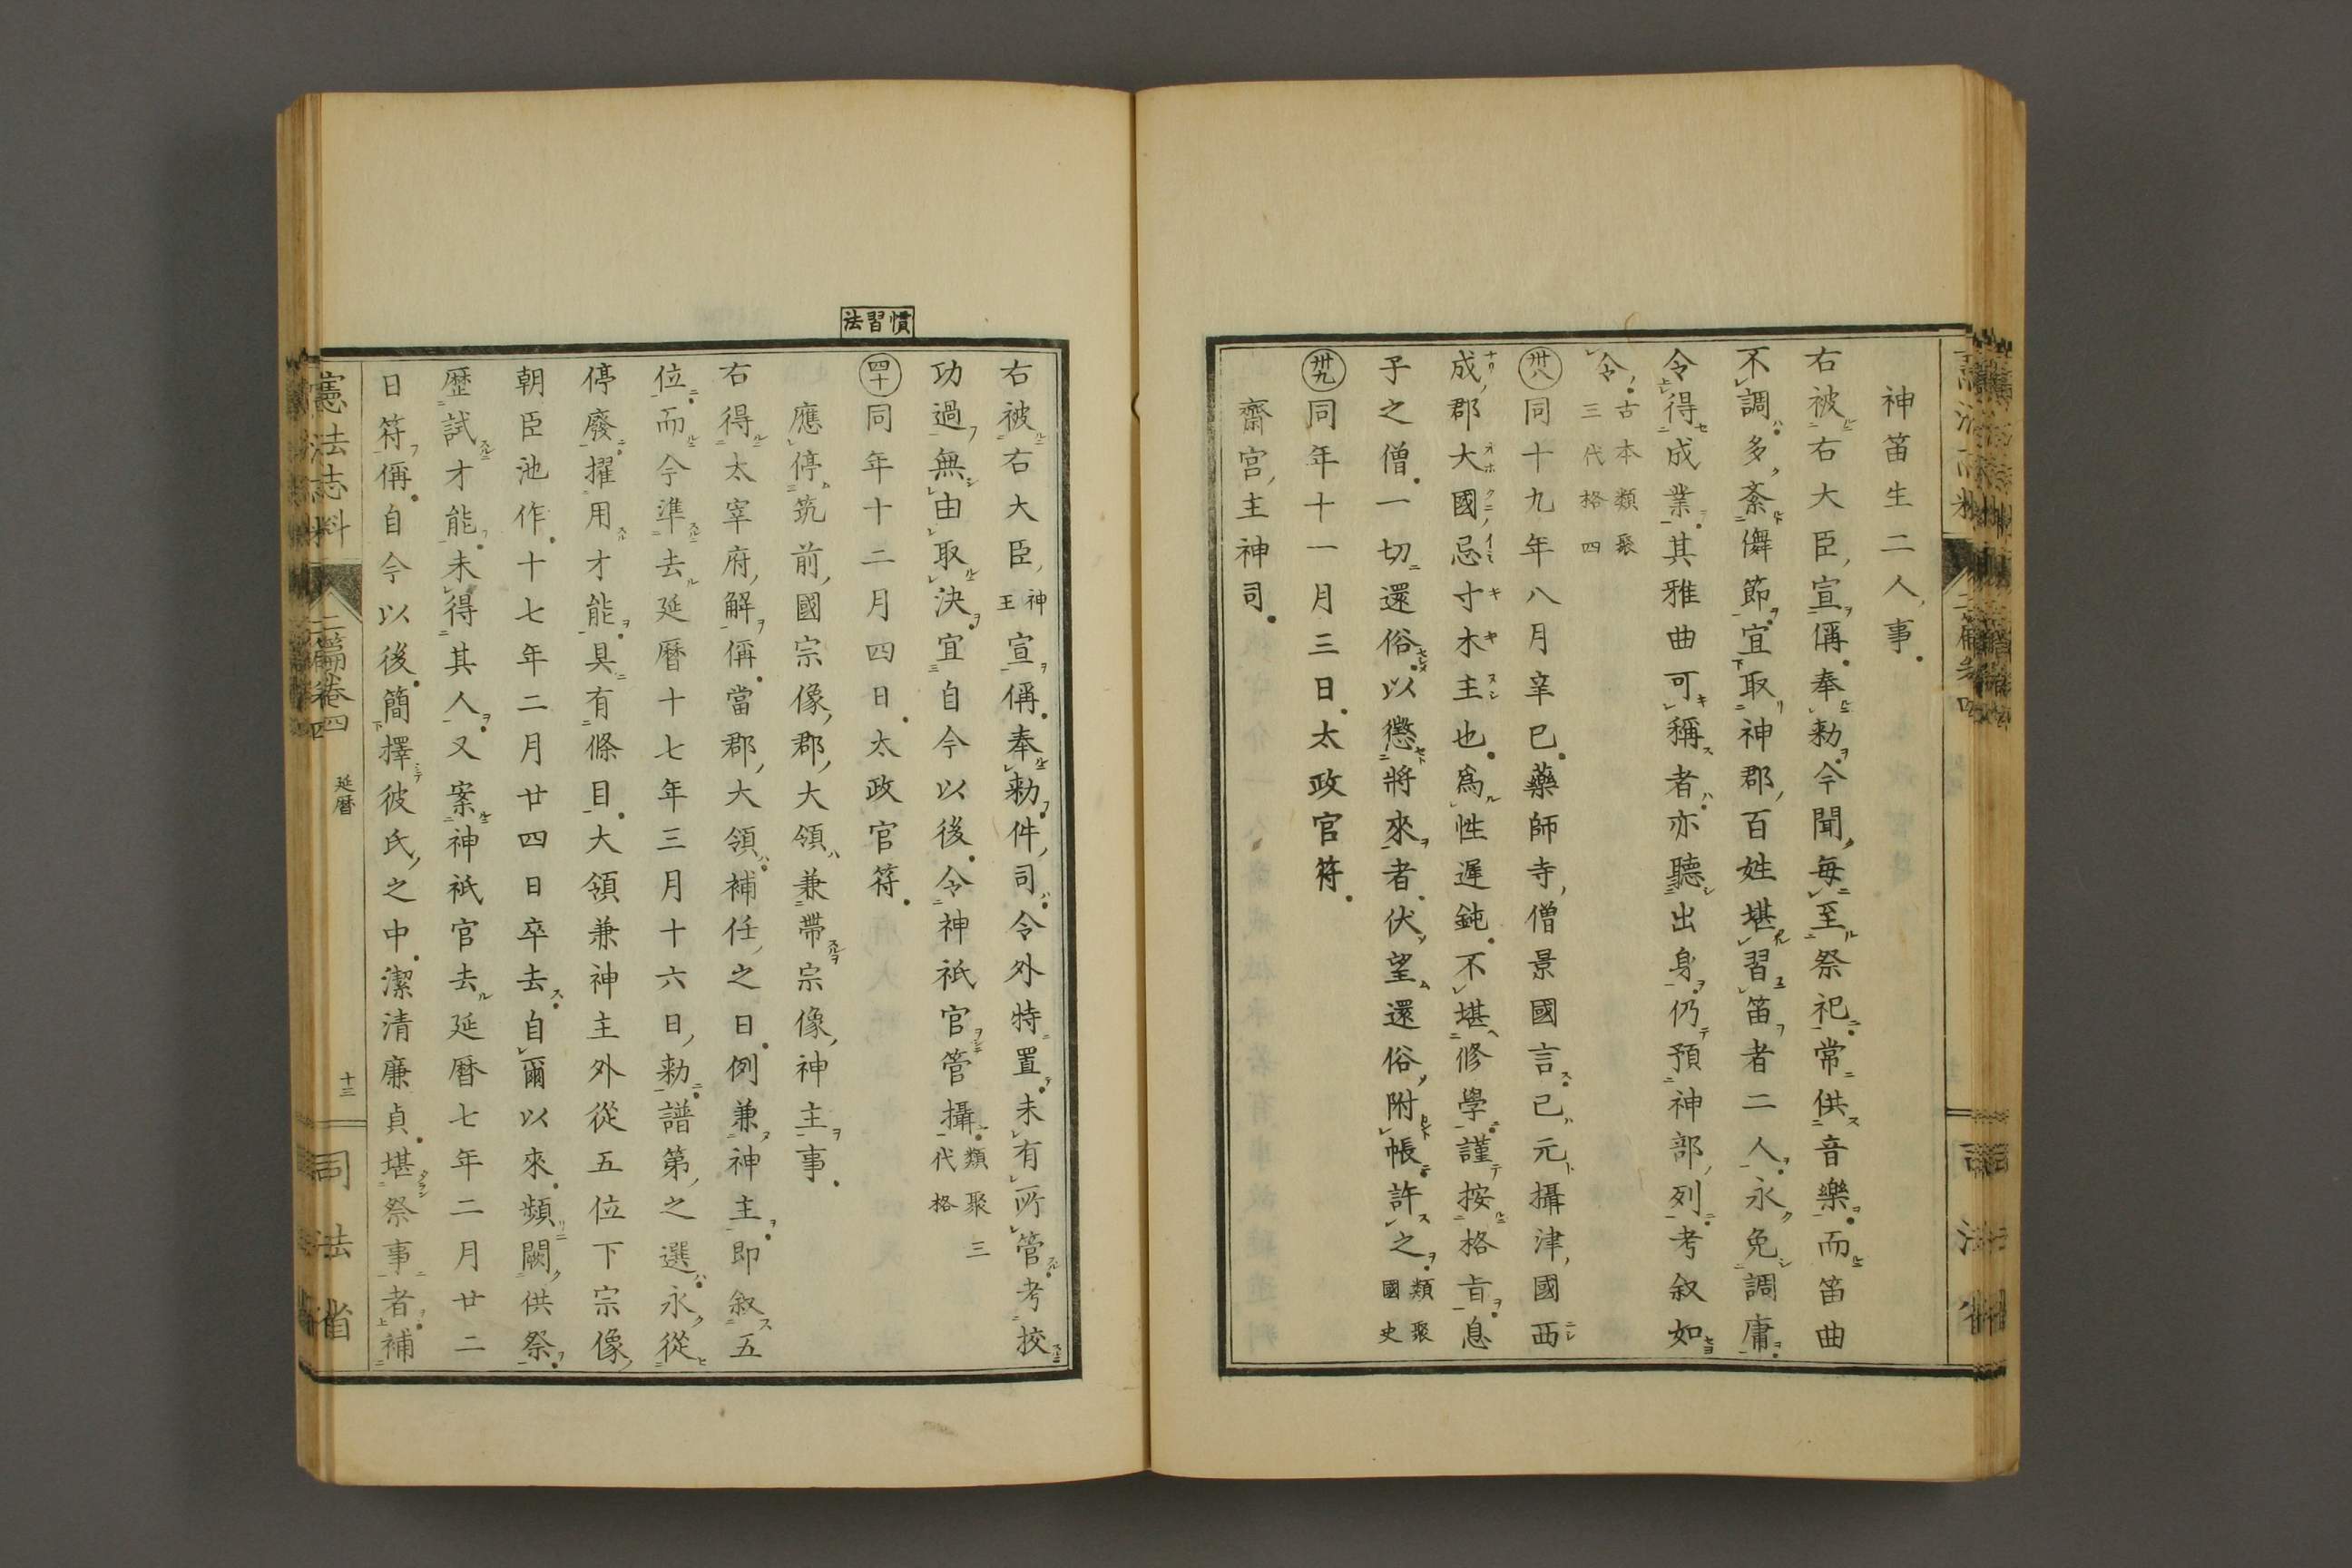 神笛生二人事
右被右大臣宣偁奉勅今聞每至祭祀常供音樂而笛曲
不調多紊儛節宜取神郡百姓堪習笛者二人永免調庸
令得成業其雅曲可稱者亦聽出身仍預神部列考叙如
令古本類聚三代格四
卅八同十九年八月辛巳藥師寺僧景國言己元攝津國西
成郡大國忌寸木主也爲性遲鈍不堪修學謹按格旨息
子之僧一切還俗以懲將來者伏望還俗附帳許之類聚國史
卅九同年十一月三日太政官符
齋宮主神司
右被右大臣神王宣偁奉勅件司令外特置未有所管考挍
功過無由取決宜自今以後令神祇官管攝類聚三代格
慣習法
四十同年十二月四日太政官符
應停筑前國宗像郡大領兼帶宗像神主事
右得太宰府解偁當郡大領補任之日例兼神主即叙五
位而今準去延曆十七年三月十六日勅譜第之選永從
停廢擢用才能具有條目大領兼神主外從五位下宗像
朝臣池作十七年二月廿四日卒去自爾以來頻闕供祭
歷試才能未得其人又案神祇官去延曆七年二月廿二
日符偁自今以後簡擇彼氏之中潔清廉貞堪祭事者補
憲法志料 二篇卷四 延曆 十三 司法省